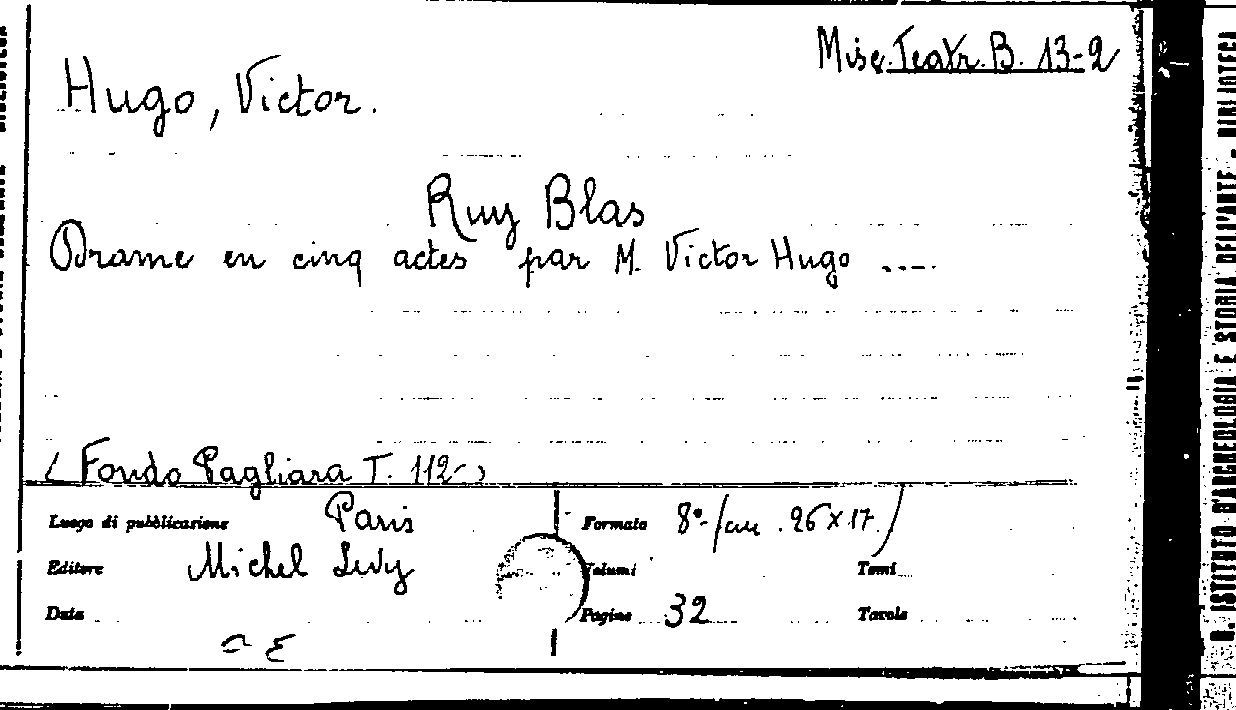 Misc. Teatr. B. 13-2
Hugo, Victor.
Ruy Blas
Drame en cinq actes par M. Victor Hugo ....
(Fondo Pagliara T. 112-)
Luogo di pubblicazione Paris
Formato 8°-/cm. 26 x 17/
Editore Michel Levy
Volumi
Tomi
Data
Pagine 32
Tavole
R. ISTITUTO D'ARCHEOLOGIA E STORIA DELL'ARTE - BIBLIOTECA